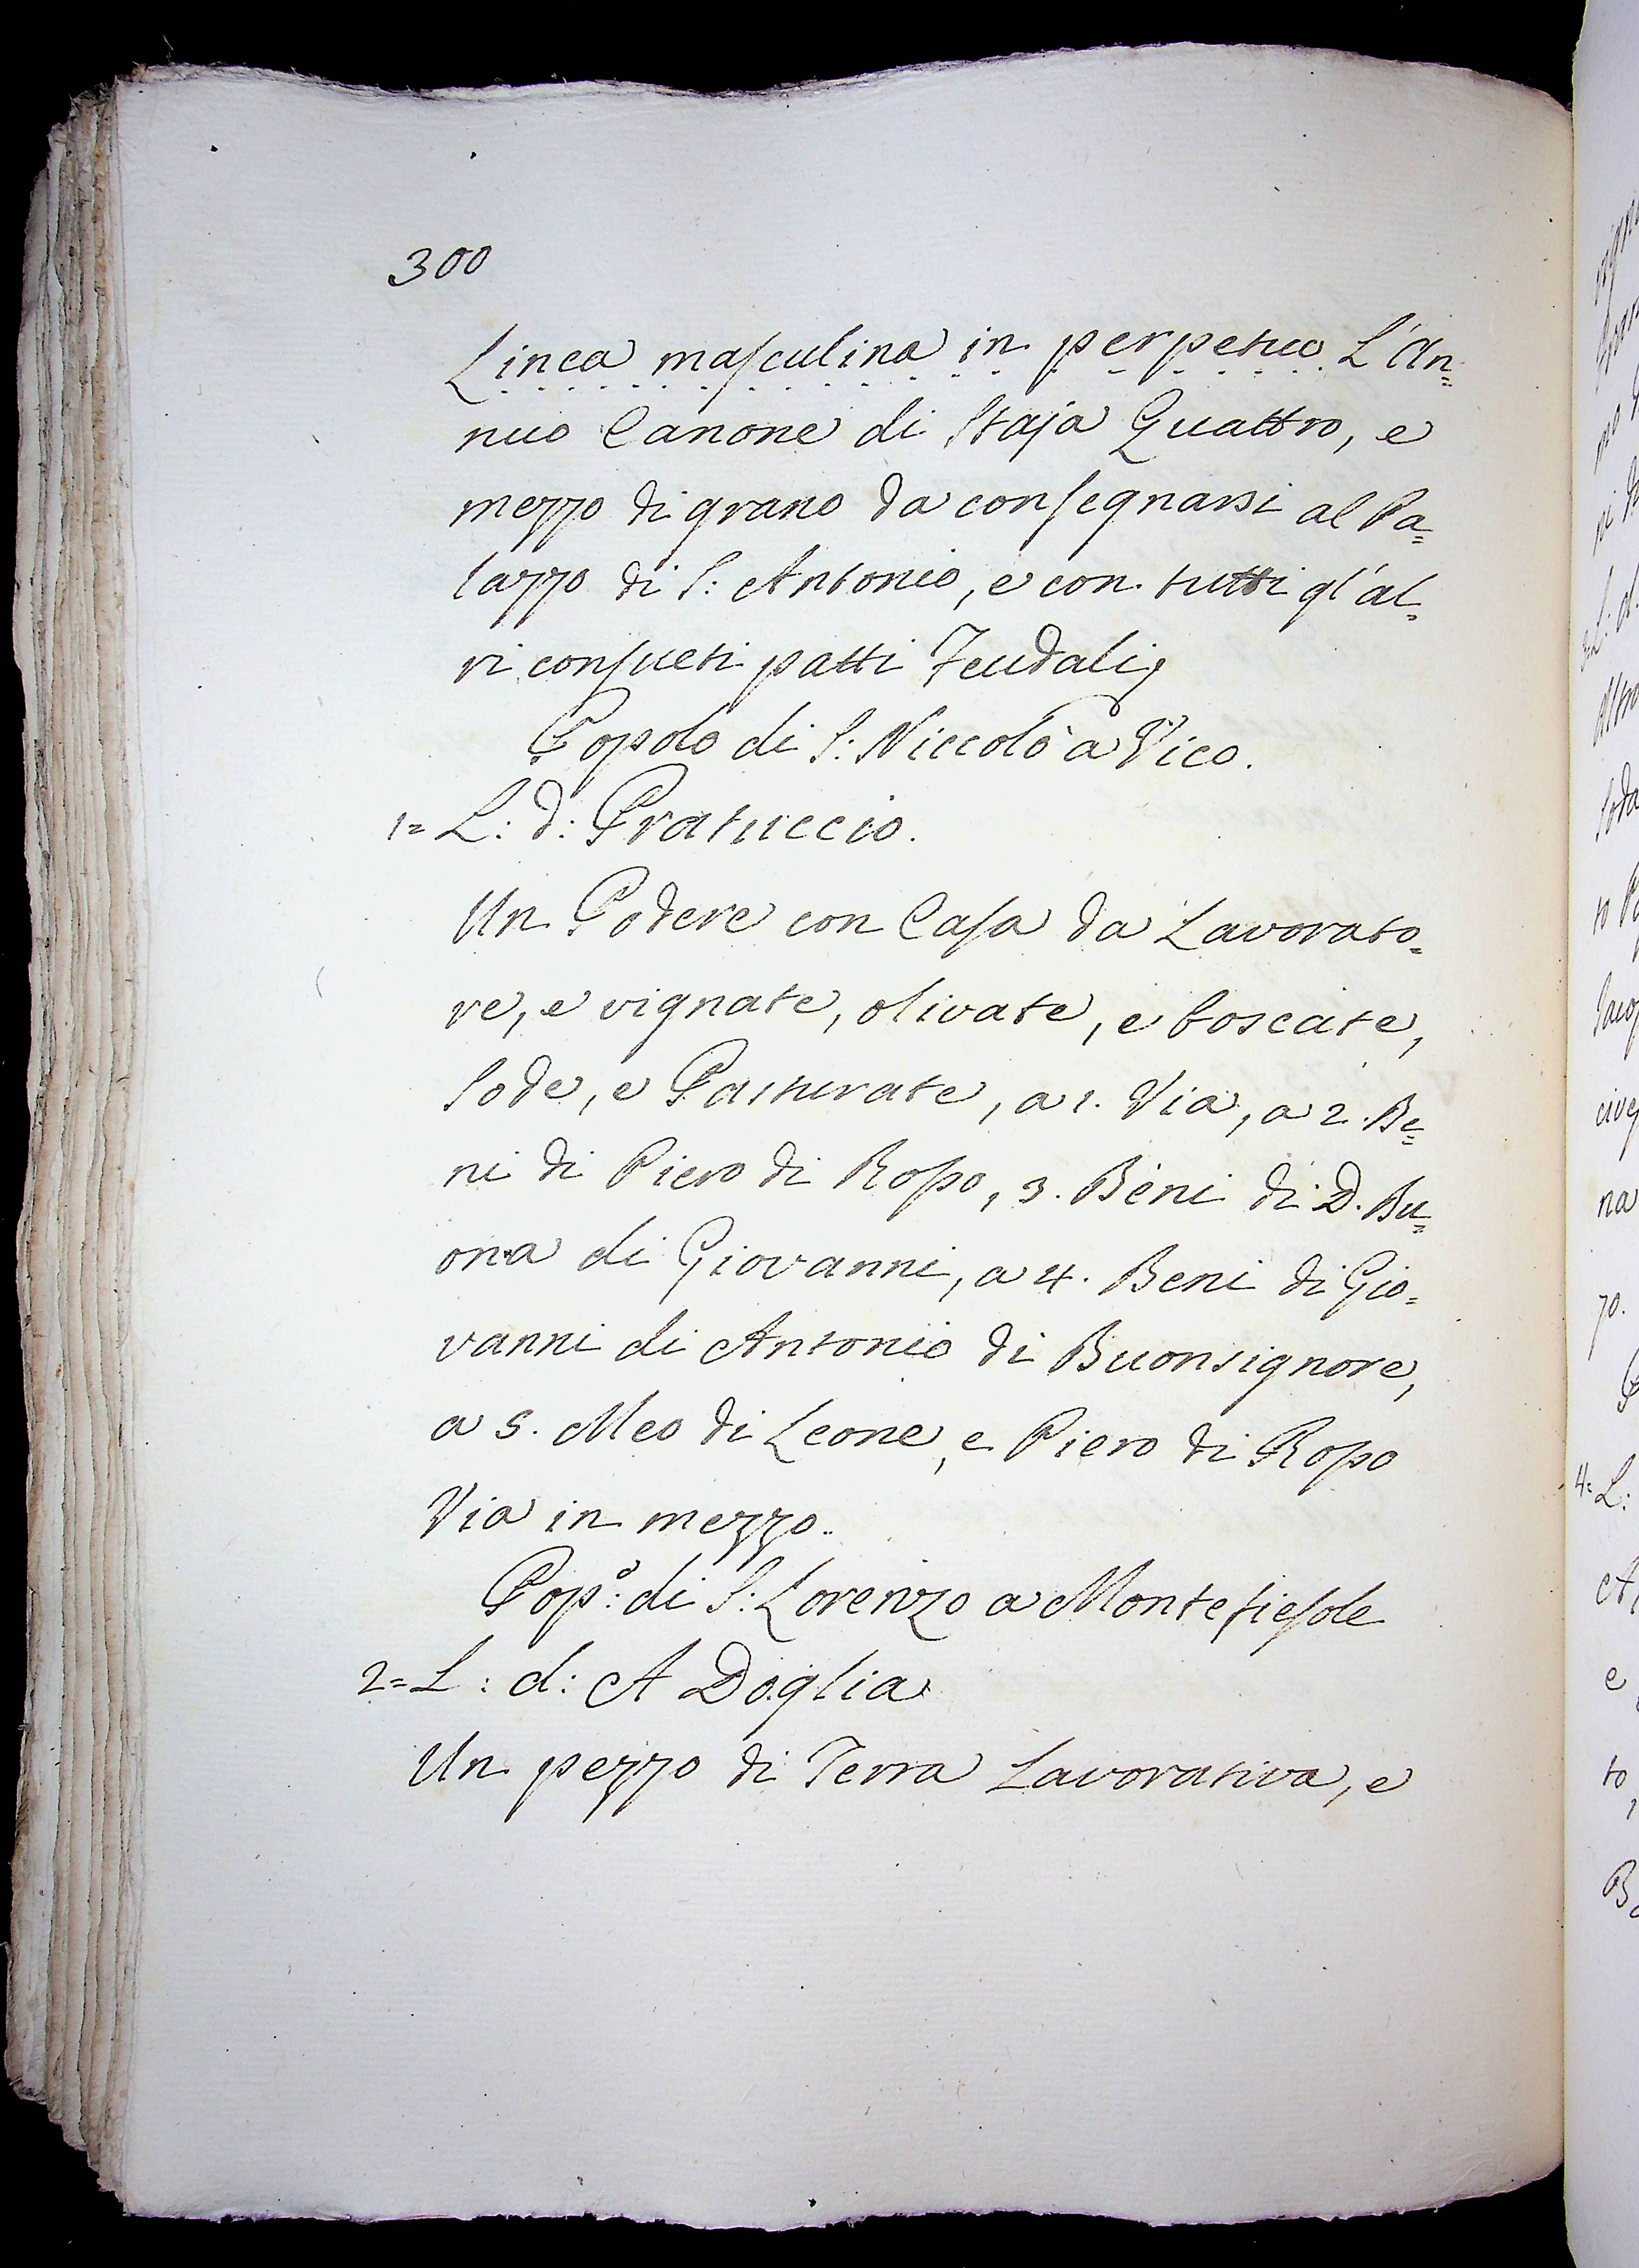 300
Linea masculina in perpetuo L'An=
nuo Canone di Staja Quattro, e
mezzo di grano da consegnarsi al Pa=
lazzo di S: Antonio, e con tutti gl'al=
ri consueti patti Feudali
Popolo di S: Niccolò a Vico.
1= L: d: Pratuccio.
Un Podere con Casa da Lavorato=
re, e vignate, olivate, e boscate,
sode, e Pasturate, a 1. Via, a 2. Be=
ni di Piero di Rosso, 3. Beni di D. Bu=
ona di Giovanni, a 4. Beni di Gio=
vanni di Antonio di Buonsignore,
a 5. Meo di Leone, e Piero di Rosso
Via in mezzo.
Pop.º: di S: Lorenzo a Montefiesole
2= L: d: A Doglia
Un pezzo di Terra Lavorativa, e